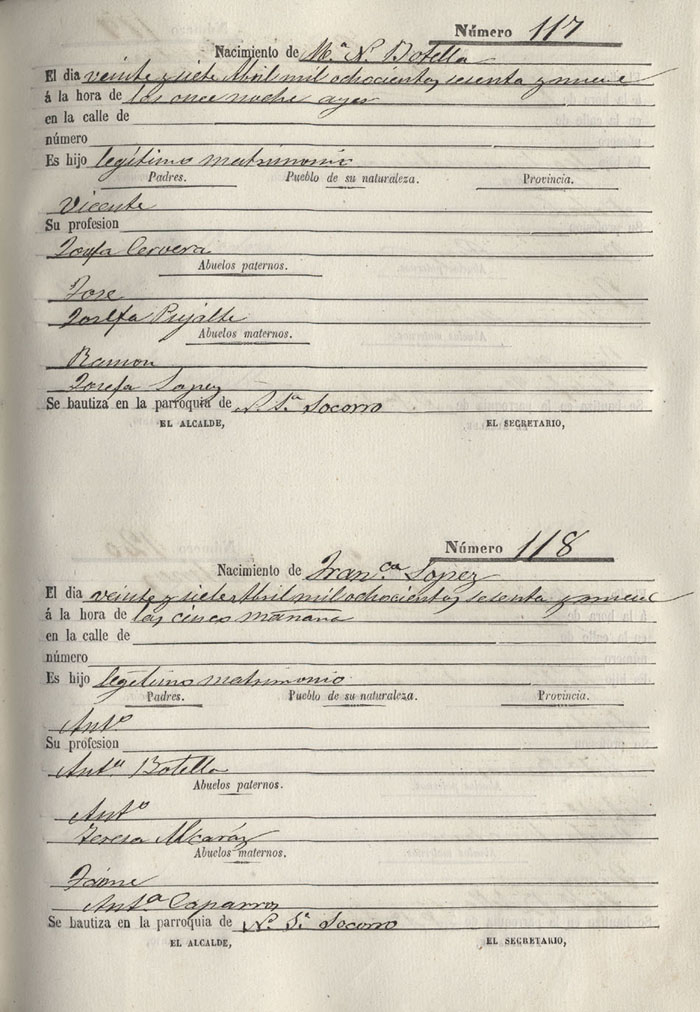 Número 117
Nacimiento de M.ª N. Botella
El dia veinte y siete Abril mil ochocientos sesenta y nueve
á la hora de las once noche ayer
en la calle de
número
Es hijo legitimo matrimonio
Padres. Pueblo de su naturaleza. Provincia.
Vicente
Su profesion
Josefa Cervera
Abuelos paternos.
Jose
Josefa Pujalte
Abuelos maternos.
Ramon
Josefa Lopez
Se bautiza en la parroquia de N. S.ª Socorro
EL ALCALDE, EL SECRETARIO,
Número 118
Nacimiento de Fran.ca Lopez
El dia veinte y siete Abril mil ochocientos sesenta y nueve
á la hora de las cinco mañana
en la calle de
número
Es hijo legitimo matrimonio
Padres. Pueblo de su naturaleza. Provincia.
Ant.º
Su profesion
Ant.ª Botella
Abuelos paternos.
Ant.º
Teresa Alcaráz
Abuelos maternos.
Jaime
Ant.ª Caparros
Se bautiza en la parroquia de N. S.ª Socorro
EL ALCALDE, EL SECRETARIO,